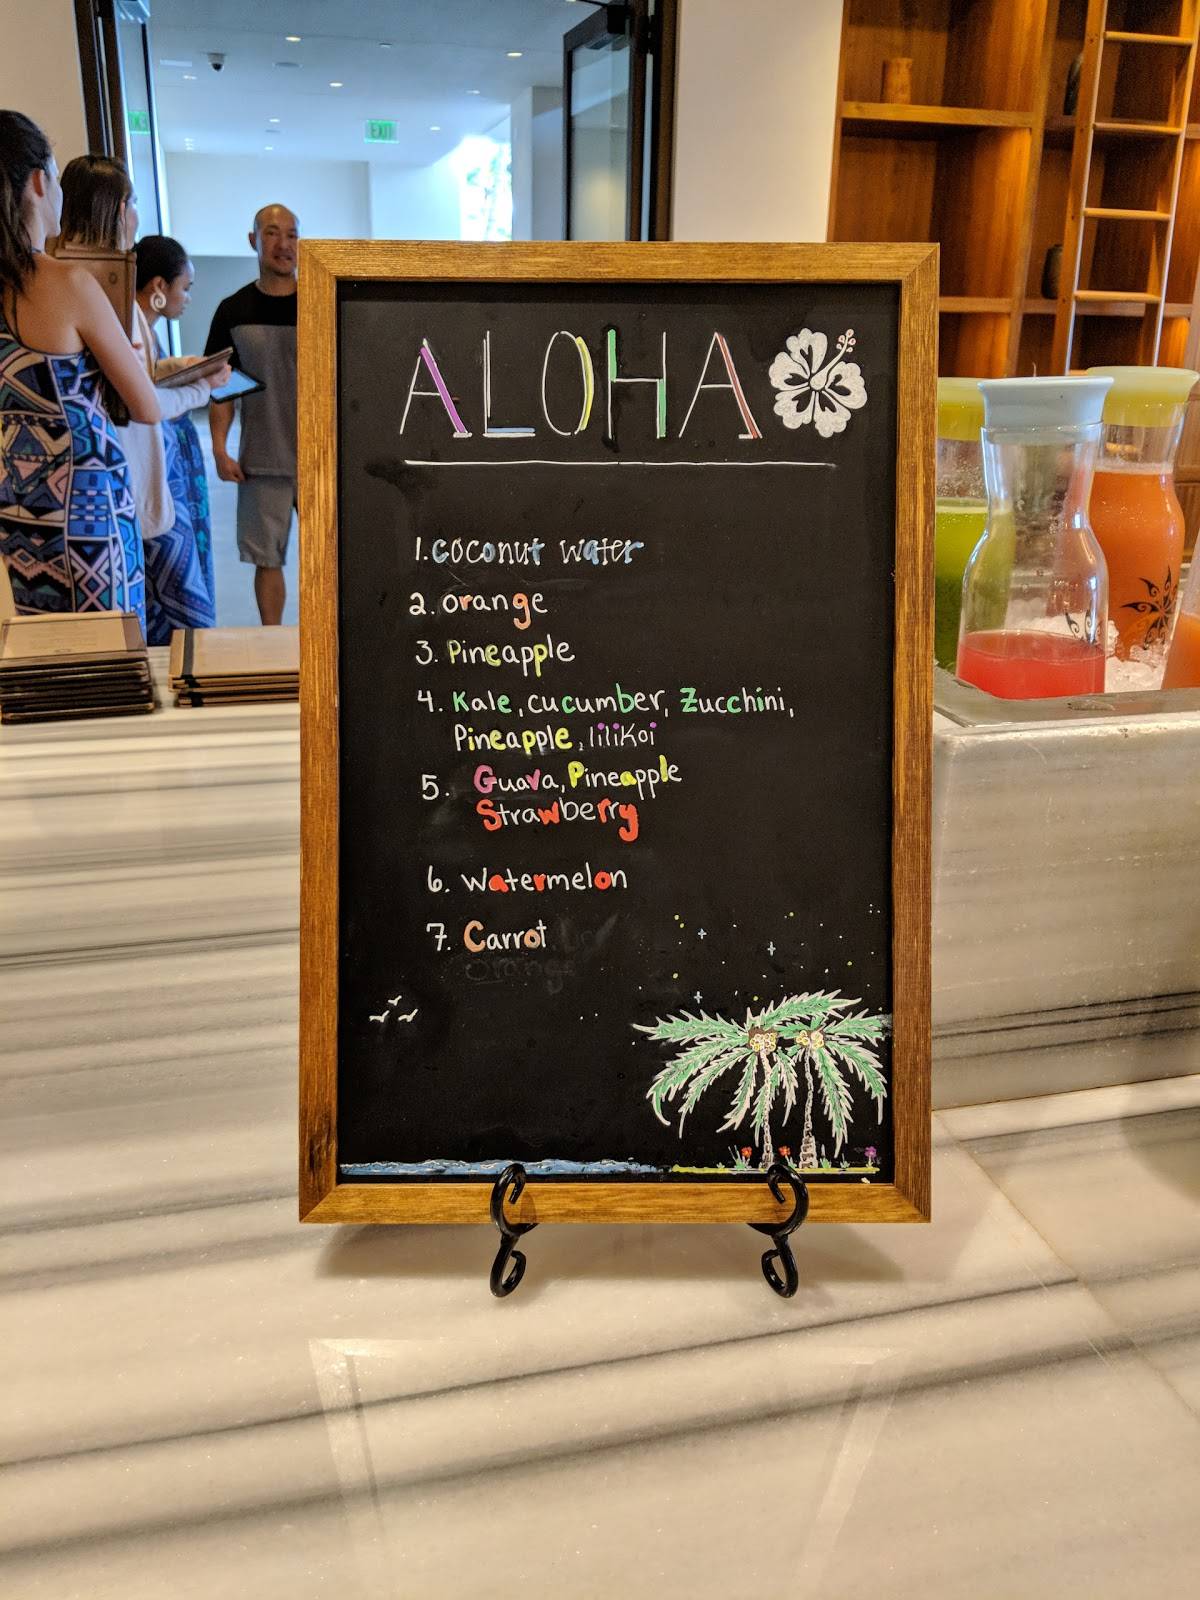 EXIT
ALOHA
1. coconut water
2. orange
3. Pineapple
4. Kale, cucumber, Zucchini,
Pineapple, lilikoi
5. Guava, Pineapple
Strawberry
6. Watermelon
7. Carrot
orange